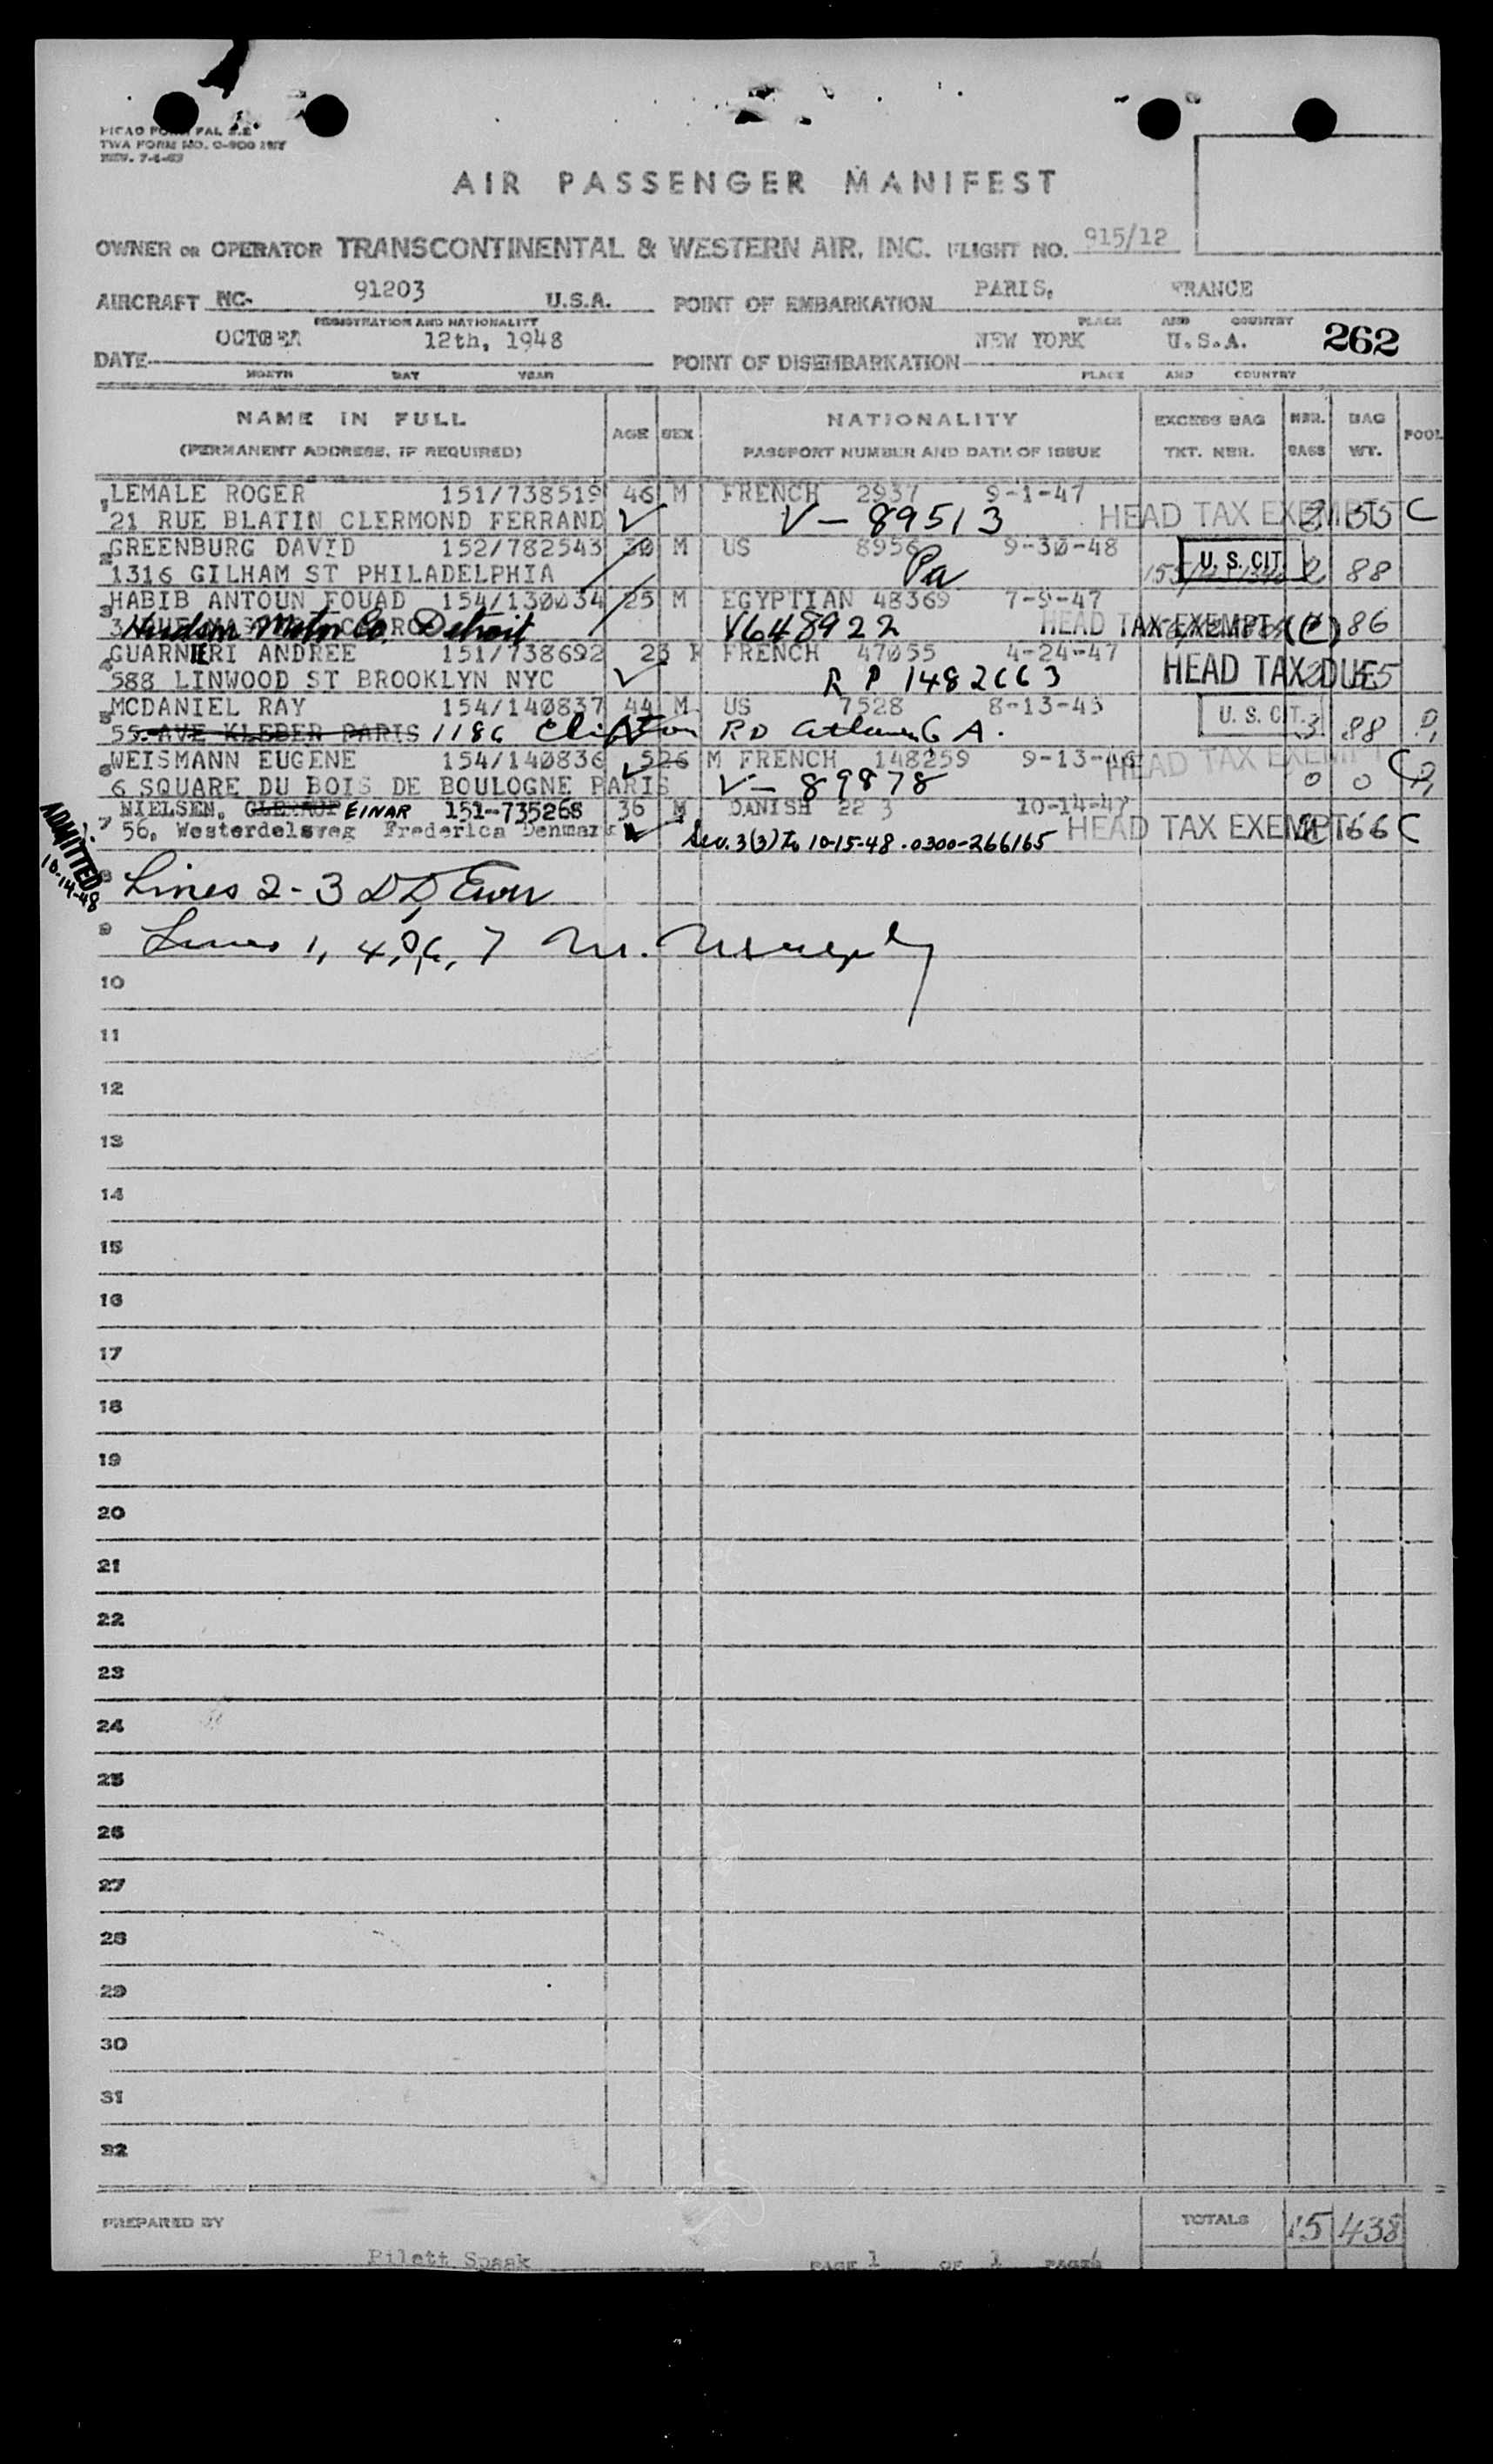 TWA FORM NO. 0-800 INT
AIR PASSENGER MANIFEST
OWNER OR OPERATOR TRANSCONTINENTAL & WESTERN AIR, INC. FLIGHT NO. 915/12
AIRCRAFT NC- 91203 U.S.A. POINT OF EMBARKATION PARIS, FRANCE
REGISTRATION AND NATIONALITY PLACE AND COUNTRY
DATE OCTOBER 12th, 1948 POINT OF DISEMBARKATION NEW YORK U.S.A. 262
MONTH DAY YEAR PLACE AND COUNTRY
NAME IN FULL AGE SEX NATIONALITY EXCESS BAG NBR. BAG POOL
(PERMANENT ADDRESS, IF REQUIRED) PASSPORT NUMBER AND DATE OF ISSUE TKT. NBR. BAGS WT.
1 LEMALE ROGER 151/738519 46 M FRENCH 2937 9-1-47
21 RUE BLATIN CLERMOND FERRAND V-89513 HEAD TAX EXEMPT 55 C
2 GREENBURG DAVID 152/782543 30 M US 8956 9-30-48
1316 GILHAM ST PHILADELPHIA Pa U. S. CIT. 2 88
3 HABIB ANTOUN FOUAD 154/130034 25 M EGYPTIAN 48369 7-9-47
Hudson Motor Co. Detroit V648922 HEAD TAX EXEMPT (C) 86
4 GUARNIERI ANDREE 151/738692 23 F FRENCH 47055 4-24-47
588 LINWOOD ST BROOKLYN NYC R P 1482663 HEAD TAX DUE 55
5 MCDANIEL RAY 154/140837 44 M US 7528 8-13-45
55 AVE KLEBER PARIS 1186 Clifton RD Atlanta GA. U. S. CIT. 3 88
6 WEISMANN EUGENE 154/140836 526 M FRENCH 148259 9-13-46
6 SQUARE DU BOIS DE BOULOGNE PARIS V-89878 HEAD TAX EXEMPT 0 0 C
7 NIELSEN, GLERUP EINAR 151-735268 36 M DANISH 22 3 10-14-47
56, Westerdelsveg Frederica Denmark 3(3) to 10-15-48 . 0300-266165 HEAD TAX EXEMPT 66 C
ADMITTED
10-14-48
8 Lines 2-3
9 Lines 1, 4, 5, 6, 7 M. Murphy
10
11
12
13
14
15
16
17
18
19
20
21
22
23
24
25
26
27
28
29
30
31
32
PREPARED BY TOTALS 15 438
Pilett Spaak PAGE 1 OF 1 PAGES